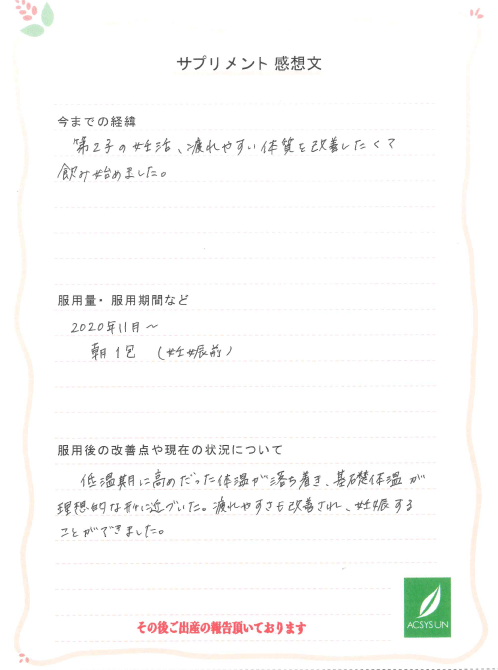 サプリメント 感想文
今までの経緯
第2子の妊活、疲れやすい体質を改善したくて
飲み始めました。
服用量・服用期間など
2020年11月～
朝1包 (妊娠前)
服用後の改善点や現在の状況について
低温期に高めだった体温が落ち着き、基礎体温が
理想的な形に近づいた。疲れやすさも改善され、妊娠する
ことができました。
その後ご出産の報告頂いております
ACSYSUN